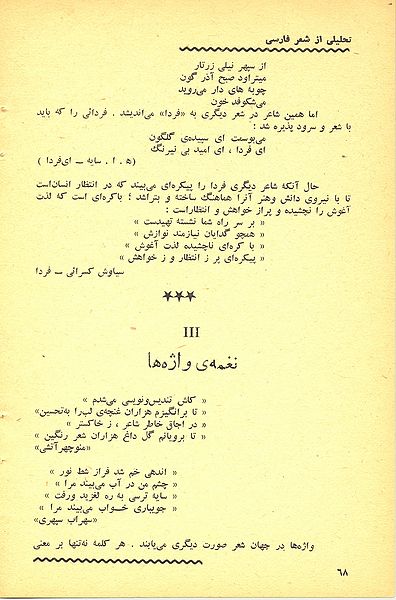 تحلیلی از شعر فارسی
از سپهر نیلی زرتار
میتراود صبح آذر گون
چوبه های دار میروید
میشکوفد خون
اما همین شاعر در شعر دیگری به «فردا» میاندیشد . فردائی را که باید
با شعر و سرود پذیره شد :
میبوسمت ای سپیدهی گلگون
ای فردا ، ای امید بی نیرنگ
(ه . ا . سایه ــ ایفردا )
حال آنکه شاعر دیگری فردا را پیکرهای میبیند که در انتظار انساناست
تا با نیروی دانش وهنر آنرا هماهنگ ساخته و بتراشد ؛ باکرهای است که لذت
آغوش را نچشیده و پراز خواهش و انتظاراست :
« بر سر راه شما نشسته تهیدست »
« همچو گدایان نیازمند نوازش »
« با کرهای ناچشیده لذت آغوش »
« پیکرهای پر ز انتظار و ز خواهش »
سیاوش کسرائی ــ فردا
★★★
III
نغمهی واژهها
« کاش تندیسونویسی میشدم »
« تا برانگیزم هزاران غنچهی لبرا بهتحسین»
« در اجاق خاطر شاعر ، ز خاکستر »
« تا برویانم گل داغ هزاران شعر رنگین »
«منوچهرآتشی»
« اندهی خم شد فراز شط نور »
« چشم من در آب میبیند مرا »
« سایه ترسی به ره لغزید ورفت »
« جویباری خـواب میبیند مرا »
«سهراب سپهری»
واژهها در جهان شعر صورت دیگری مییابند . هر کلمه نهتنها بر معنی
۶۸